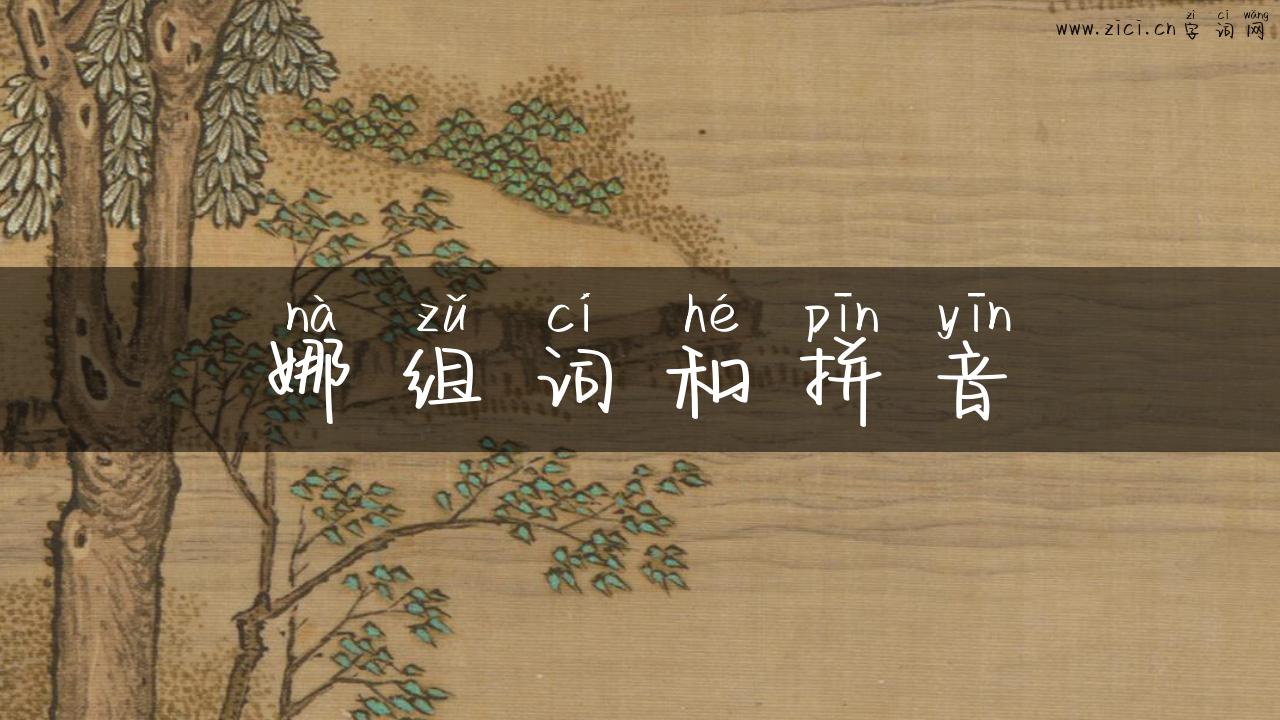 zì cí wǎng
www.zici.cn 字词网
nà zǔ cí hé pīn yīn
娜组词和拼音